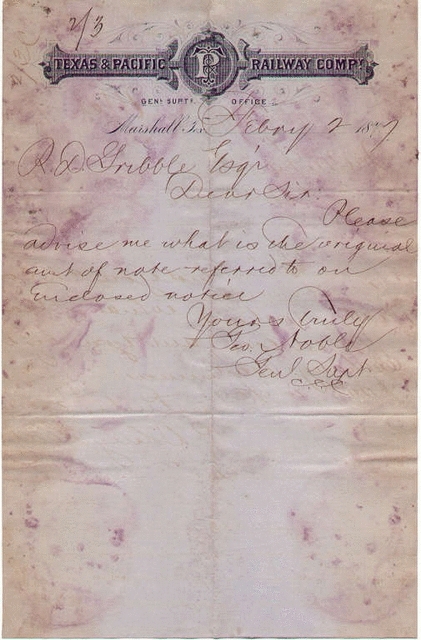 2/3
TEXAS & PACIFIC RAILWAY COMPY
GENL SUPTS. OFFICE
Marshall Tex Febry 2 187
R. D. Gribble Esqr
Dear Sir.
Please
advise me what is the original
amt of note referred to on
enclosed notice
Yours truly
Geo. Noble
Genl Supt